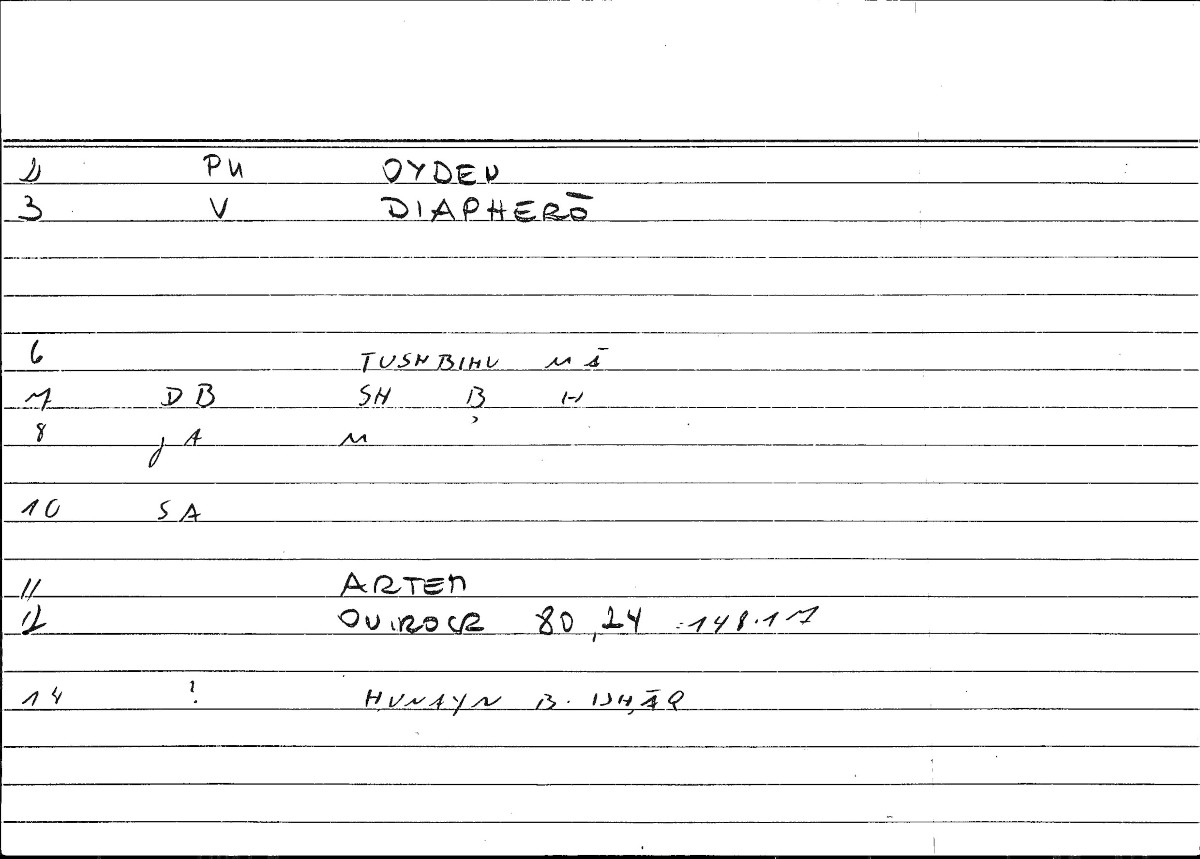 2 PN OYDEN
3 V DIAPHERŌ
6 TUSHBIHU MĀ
7 DB SH B H
8 JA M
10 SA
11 ARTEM
12 OUIROCR 80,24 :148.17
14 ? ḤUNAYN B. ISḤĀQ